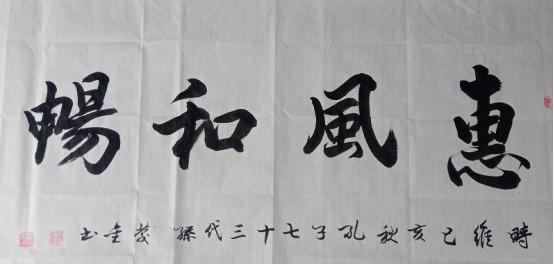 惠風和暢
時維己亥秋孔子七十三代孫慶重书